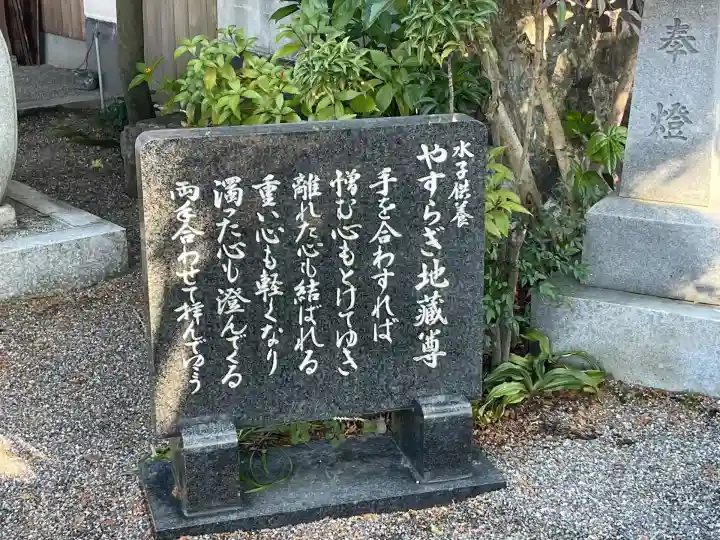 水子供養
やすらぎ地蔵尊
手を合わすれば
憎む心もとけてゆき
離れた心も結ばれる
重い心も軽くなり
濁った心も澄んでくる
両手合わせて拝んでゆこう
奉燈